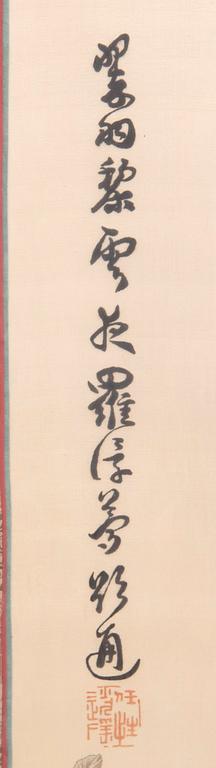 翠羽黎雲夜羅浮夢欲通